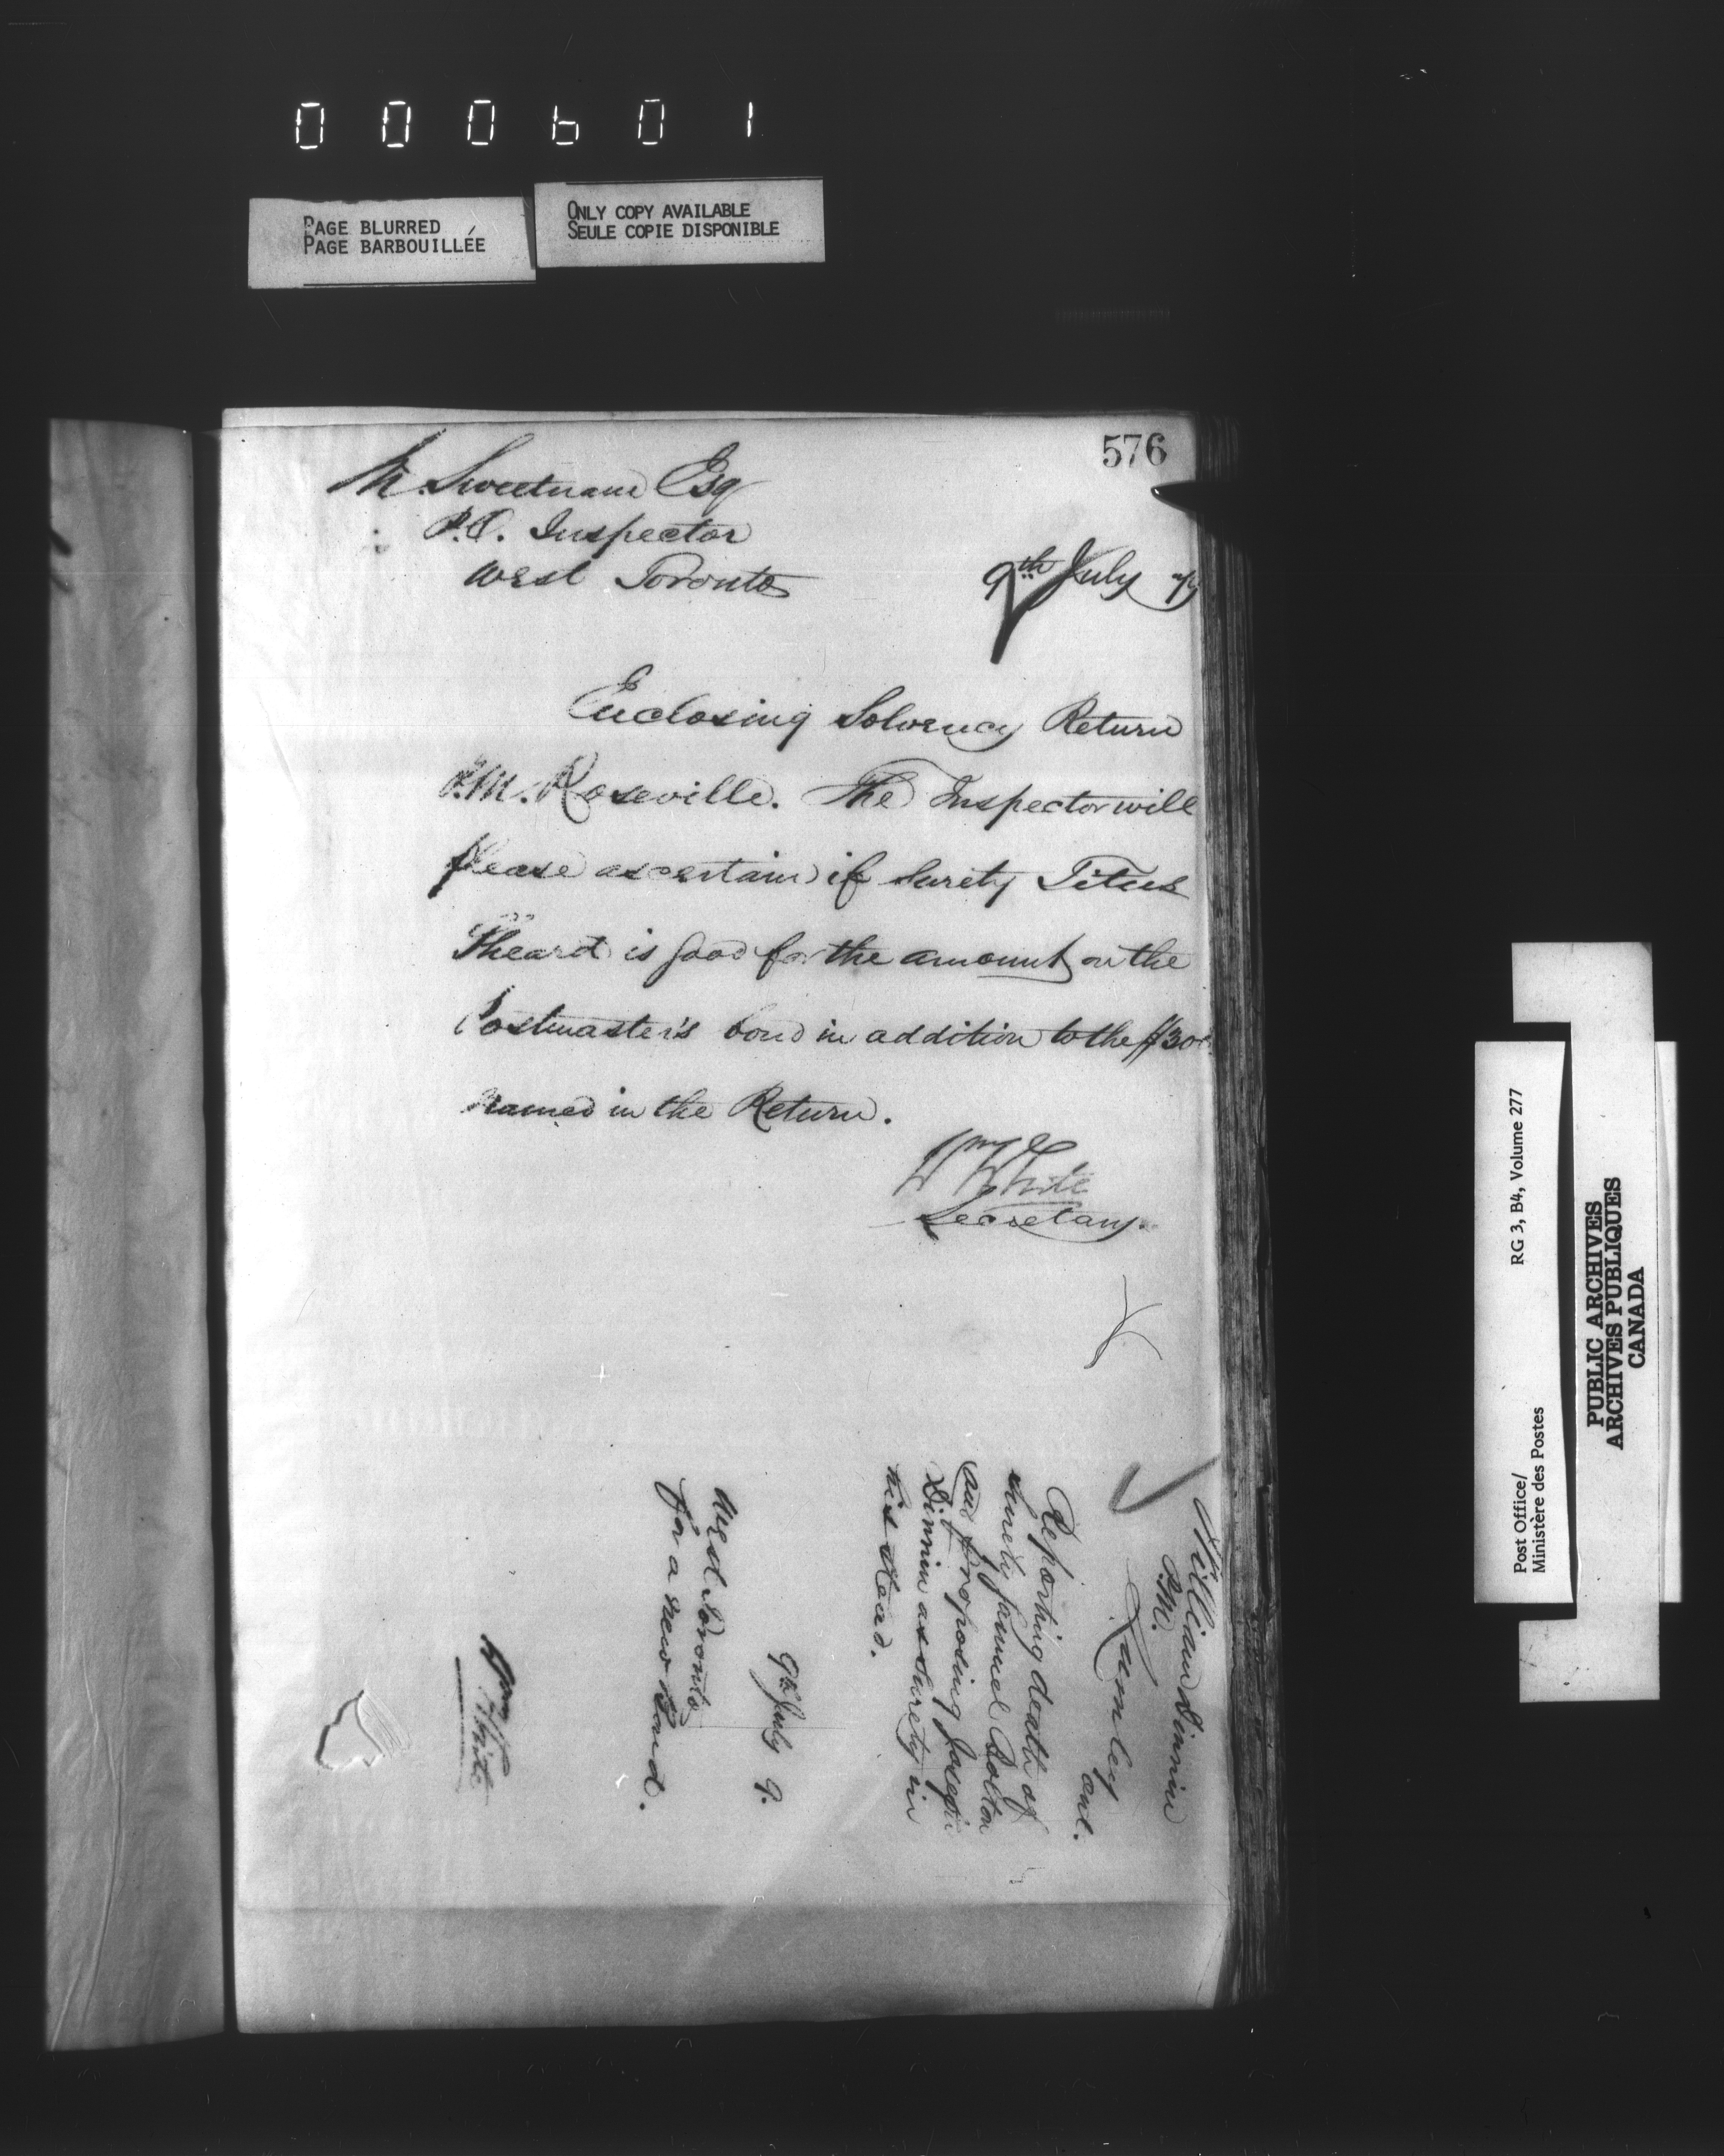 000601
PAGE BLURRED
PAGE BARBOUILLÉE
ONLY COPY AVAILABLE
SEULE COPIE DISPONIBLE
576
M. Sweetnam Esq
P.O. Inspector
West Toronto
9th July 79
Enclosing Solvency Return
P.M. Roseville. The Inspector will
please ascertain if Surety Titus
is good for the amount on the
Postmaster's bond in addition to the $300
named in the Return.
Wm White
Secretary.
William Dinnin
P.M.
Ont.
Reporting death of
surety Samuel Bolton
and proposing Joseph
Dinnin as surety in
his stead.
9th July 9.
West Toronto
for a new Bond.
Wm White
Post Office/
Ministère des Postes
RG 3, B4, Volume 277
PUBLIC ARCHIVES
ARCHIVES PUBLIQUES
CANADA